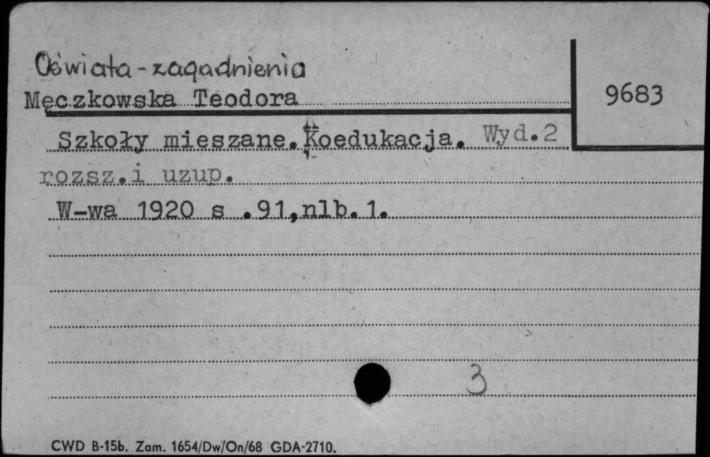 Oświata - zagadnienia
Męczkowska Teodora
9683
Szkoły mieszane. Koedukacja. Wyd.2
rozsz.i uzup.
W-wa 1920 s .91,nlb.1.
3
CWD B-15b. Zam. 1654/Dw/On/68 GDA-2710.